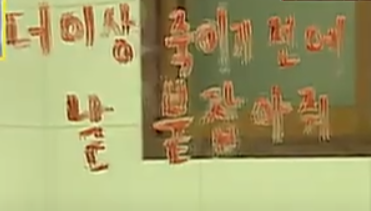 더이상 죽이기 전에
날 붙잡아줘